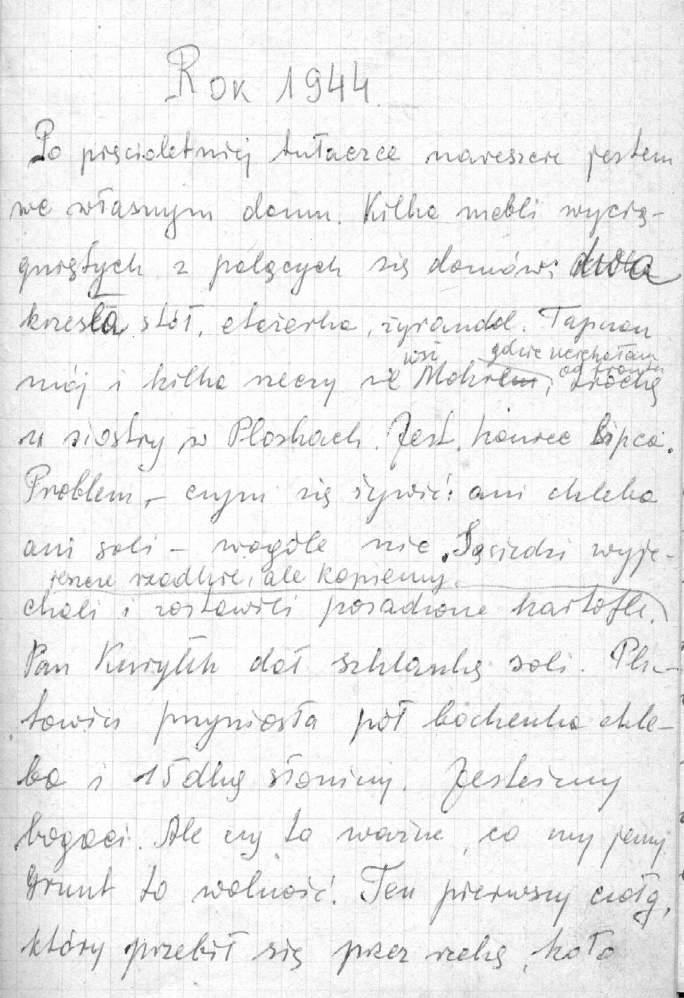 Rok 1944.
Po pięcioletniej tułaczce nareszcie jestem
we własnym domu. Kilka mebli wycią-
gniętych z palących się domów: dwa
krzesła, stół, etażerka, żyrandol. Tapczan
wsi gdzie uciekałam
od frontu
mój i kilka rzeczy ze Mokre, trochę
u siostry w Ploskach. Jest koniec lipca.
Problem – czym się żywić: ani chleba
ani soli – wogóle nic. Sąsiedzi wyje-
jeszcze rzadkie, ale kopiemy.
chali i zostawili posadzone kartofle.
Pan dał szklankę soli.
przyniosła pół bochenka chle-
ba i 15 dkg słoniny. Jesteśmy
bogaci. Ale czy to ważne, co my jemy
grunt to wolność. Ten pierwszy czołg,
który przebił się przez rzekę, koło